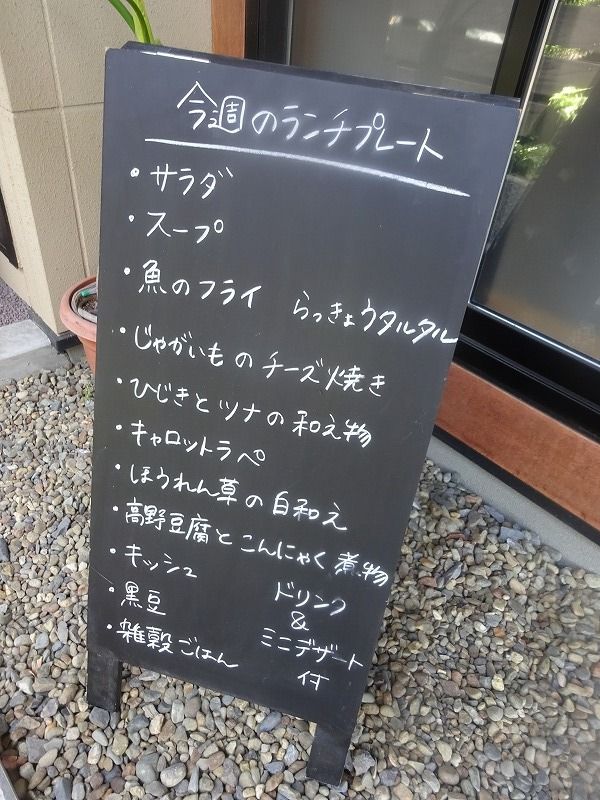 今週のランチプレート
・サラダ
・スープ
・魚のフライ らっきょうタルタル
・じゃがいものチーズ焼き
・ひじきとツナの和え物
・キャロットラペ
・ほうれん草の白和え
・高野豆腐とこんにゃく煮物
・キッシュ
・黒豆
・雑穀ごはん
ドリンク
&
ミニデザート
付